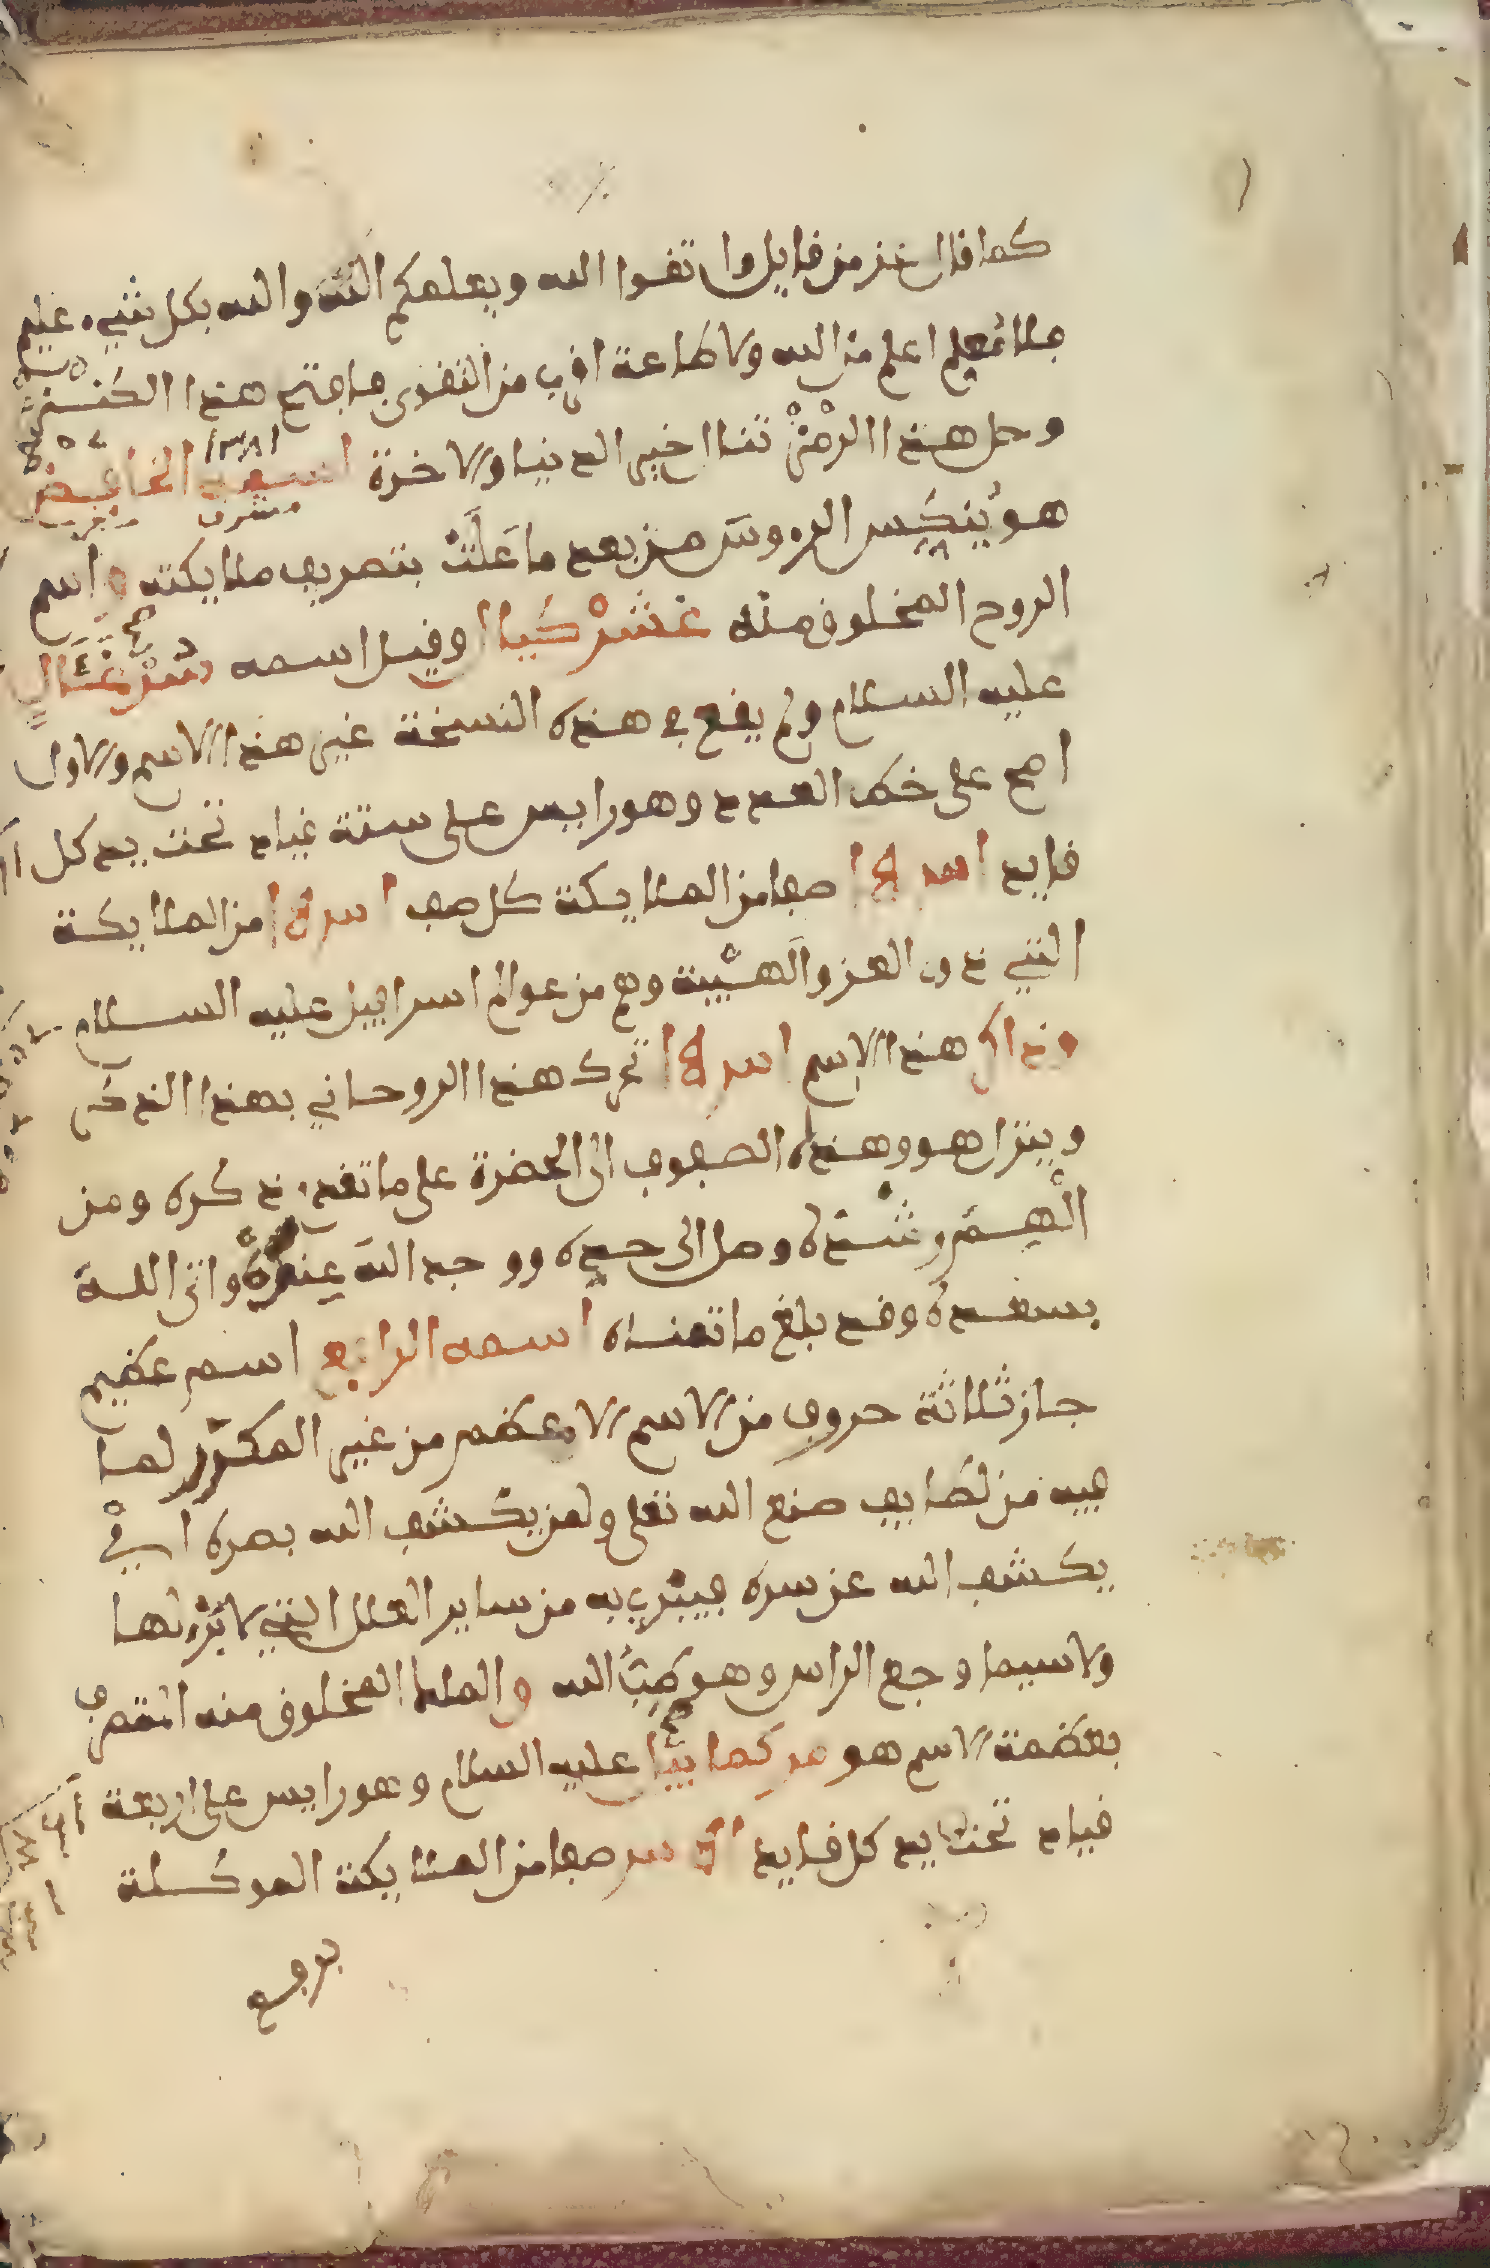 كما قال عز من قايل واتقوا الله ويعلمكم الله والله بكل شيء عليم
فلا معلم اعلم من الله ولا طاعة اقرب من التقوى فافتح هذا الكنز
وحل هذا الرمز تنل اخير الدنيا والاخرة اسمه الخافض
هو ينكس الرءوس من بعد ما علت بتصريف ملايكته واسم
الروح المخلوق منه وقيل اسمه
عليه السلام ولم يقع في هذه النسخة غير هذا الاسم والاول
اصح على خط العدد وهو رايس على ستة قياد تحت يد كل
قايد صفا من الملايكة كل صف من الملايكة
التي ذوى العز والهيبة وهم من عوالم اسرافيل عليه السلام
وذاكر هذا الاسم تحرك هذا الروحاني بهذا الذكر
وينزل هو وهذه الصفوف الى الحضرة على ما تقدم ذكره ومن
الهم رشده وصل الى حده ووجد الله عنده واتى الله
بسعده وقد بلغ ما تمناه اسمه الرابع اسم عظيم
جاز ثلاثة حروف من الاسم الاعظم من غير المكرر لما
فيه من لطايف صنع الله تعلى ولمن يكشف الله بصره
يكشف الله عن سره فيبرى به من ساير العلل التي لا برء لها
ولا سيما وجع الراس وهو طب الله والملك المخلوق منه المتصرف
بعظمة الاسم هو عليه السلام وهو رايس على اربعة
قياد تحت يد كل قايد صفا من الملايكة الموكلة
برفع